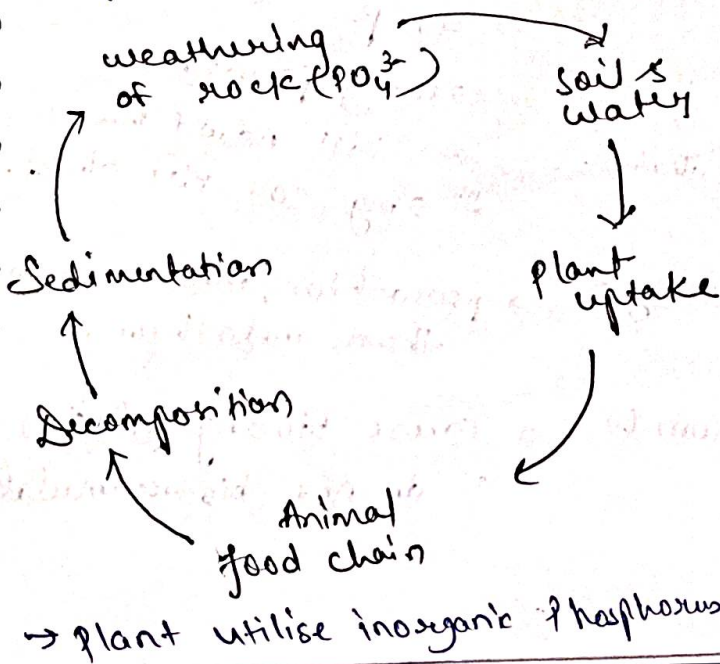 weathering
of rock (PO₄³⁻)
soil &
water
Plant
uptake
Animal
food chain
Decomposition
Sedimentation
→ Plant utilise inorganic Phosphorus